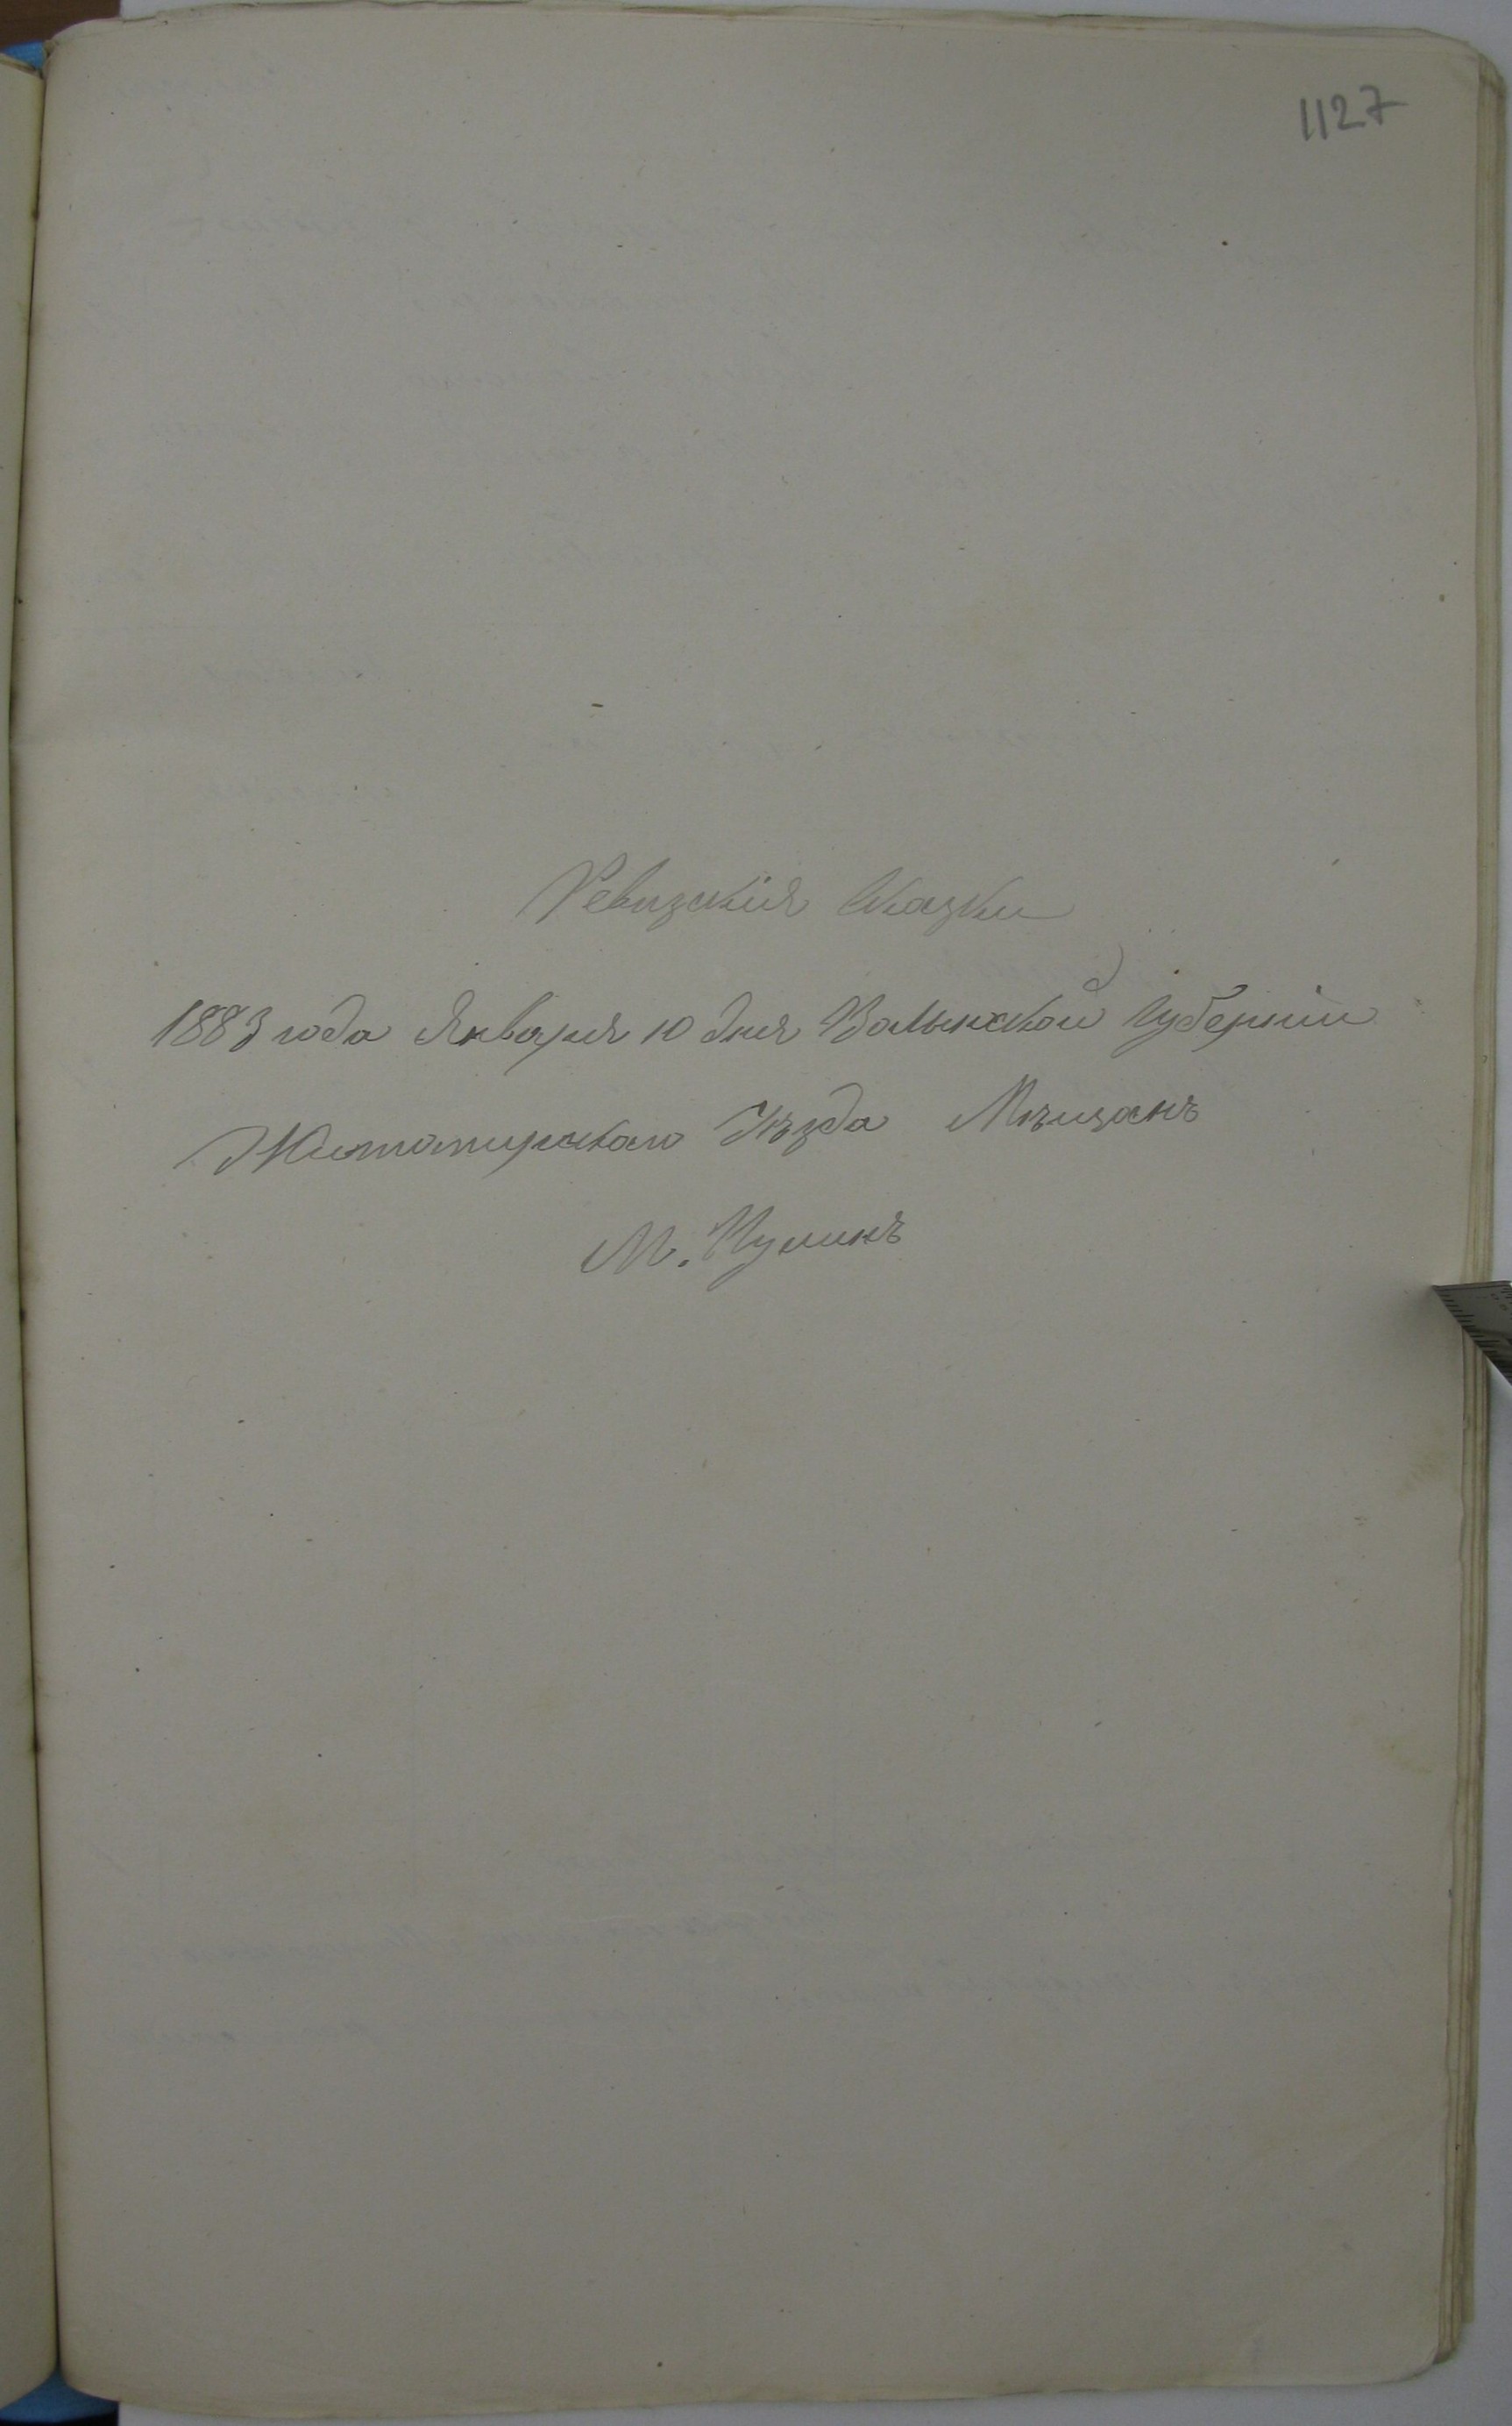 1127
Ревизскія Сказки
1883 года Января 10 дня Волынской Губерніи
Житомирскаго Уѣзда Мѣщанъ
М. Пулинъ